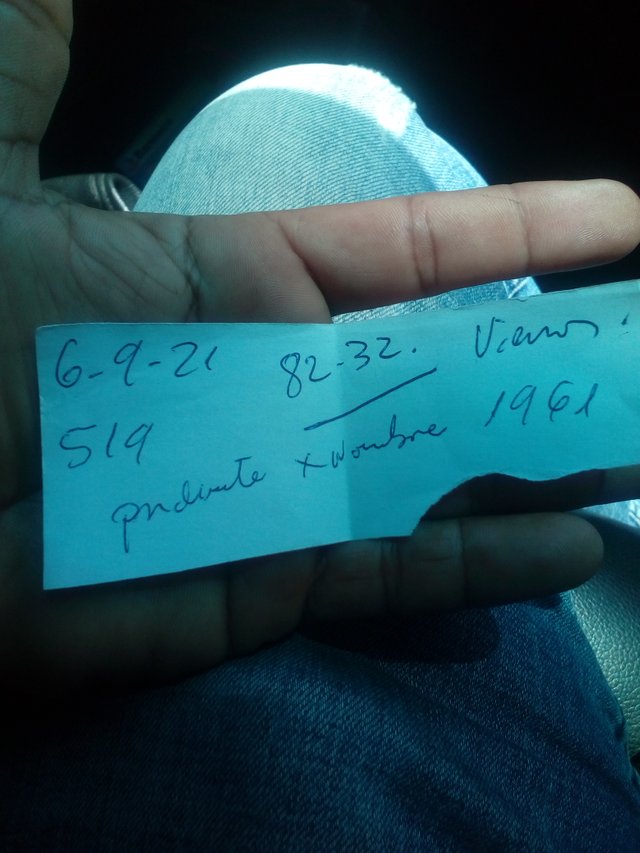 6-9-21 82-32. Viernes
519
pndiente x Nombre 1961